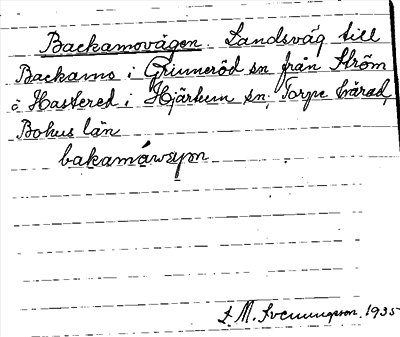 Backamovägen Landsväg till
Backamo i Grinneröd sn från Ström
å Hastered i Hjärtum sn, Torpe härad,
Bohus län
bakamåwspn
L. M. Svenungsson. 1935